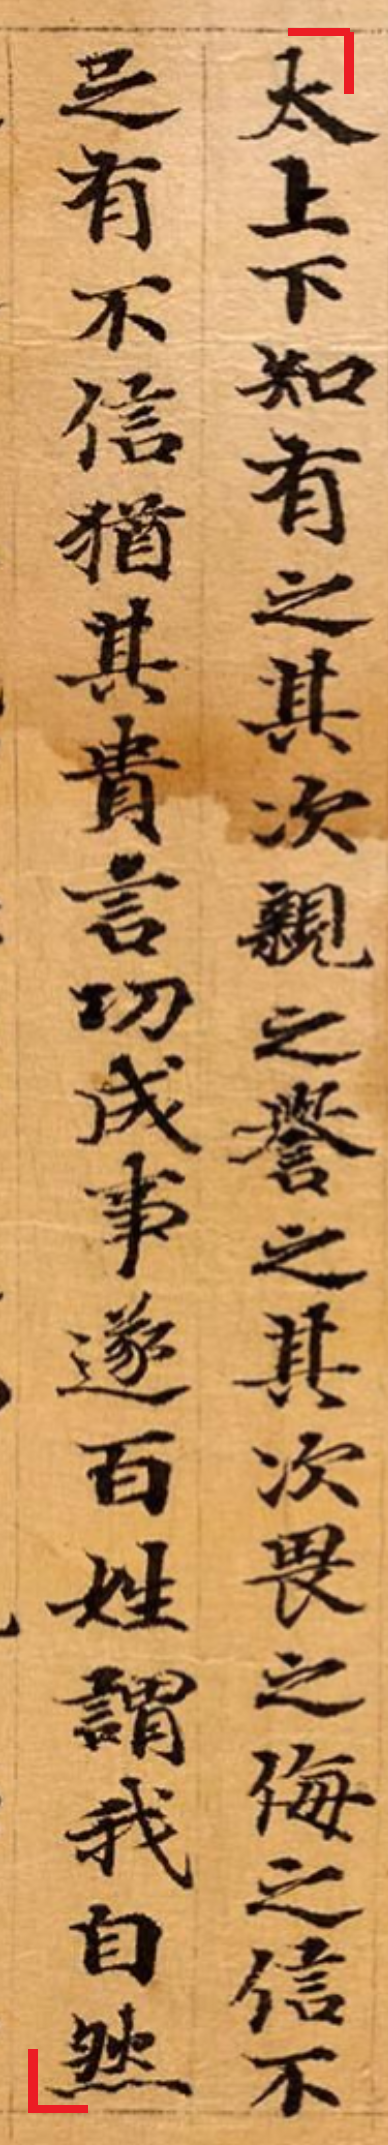 太上下知有之其次親之譽之其次畏之侮之信不
足有不信猶其貴言功成事遂百姓謂我自然